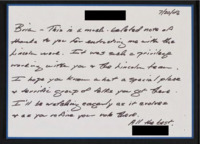 7/20/12
Brian – This is a much-belated note of
thanks to you for entrusting me with the
Lincoln work. It was such a privilege
working with you & the Lincoln team.
I hope you know what a special place
& terrific group of folks you got there.
I'll be watching eagerly as it evolves
& as you refine your role there.
All the best,